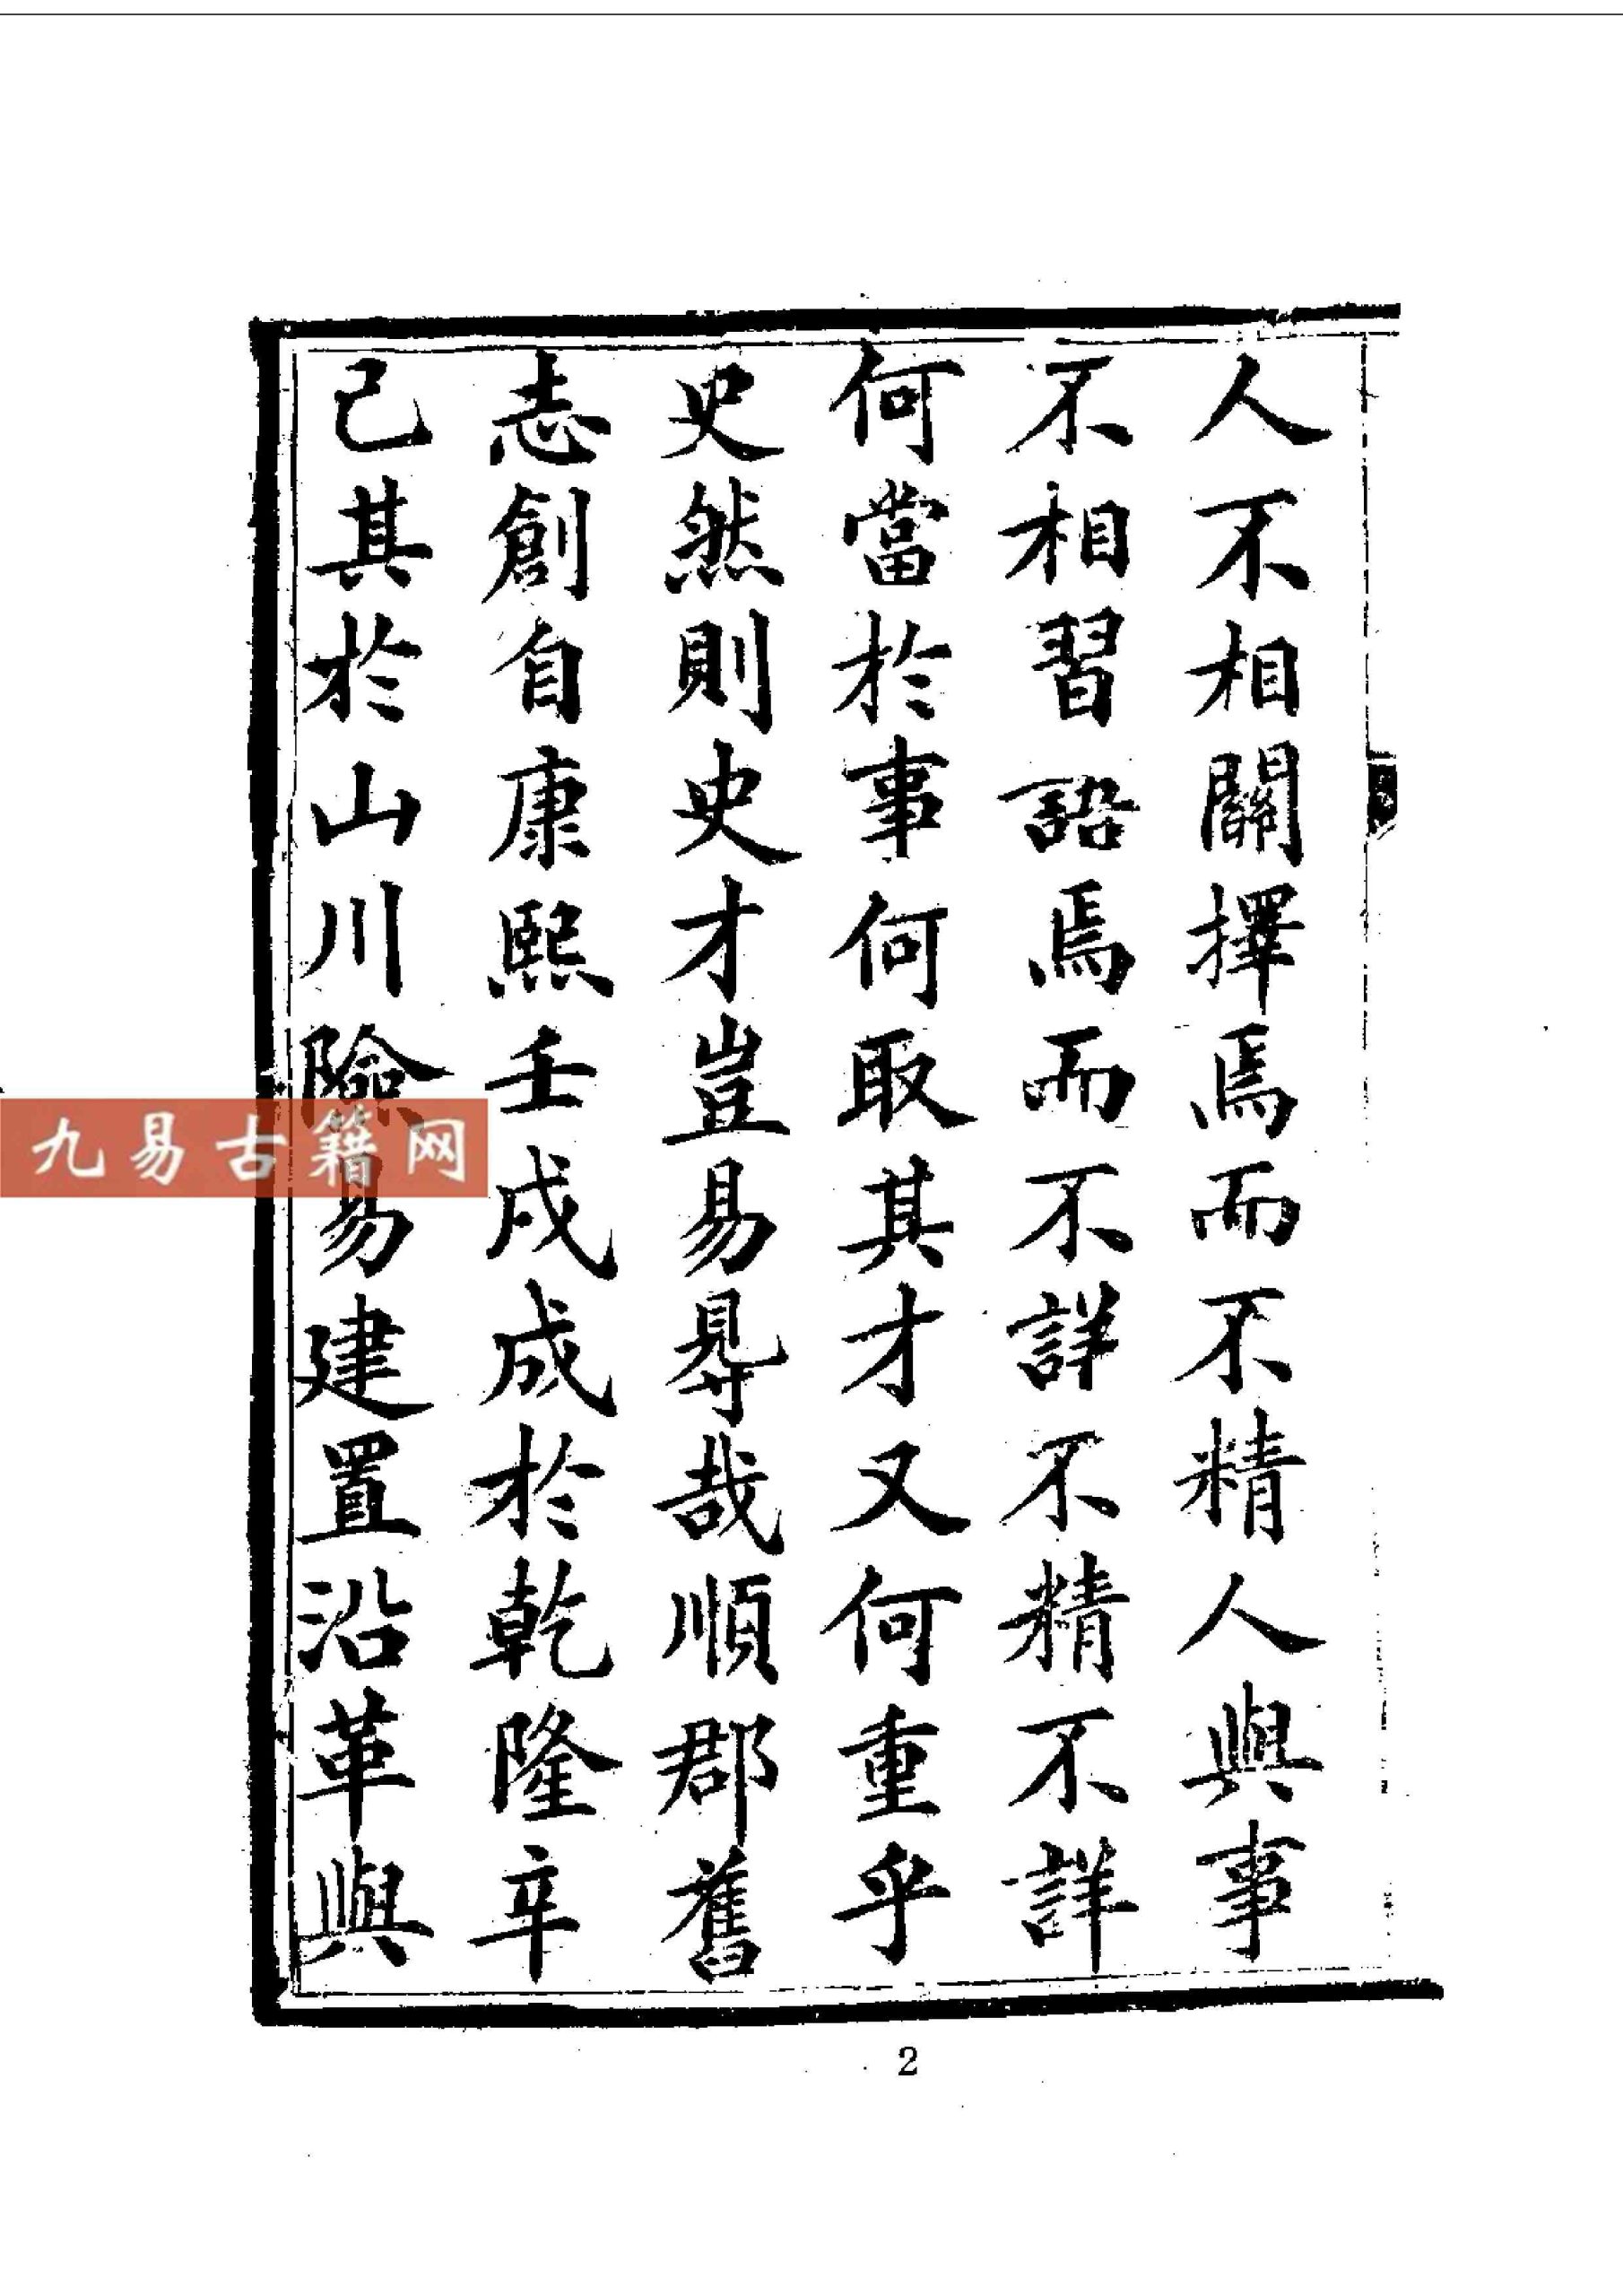 人不相關擇焉而不精人與事
不相習語焉而不詳不精不詳
何當於事何取其才又何重乎
史然則史才豈易㝵哉順郡舊
志創自康熙壬戌成於乾隆辛
己其於山川險易建置沿革與
九易古籍网
2